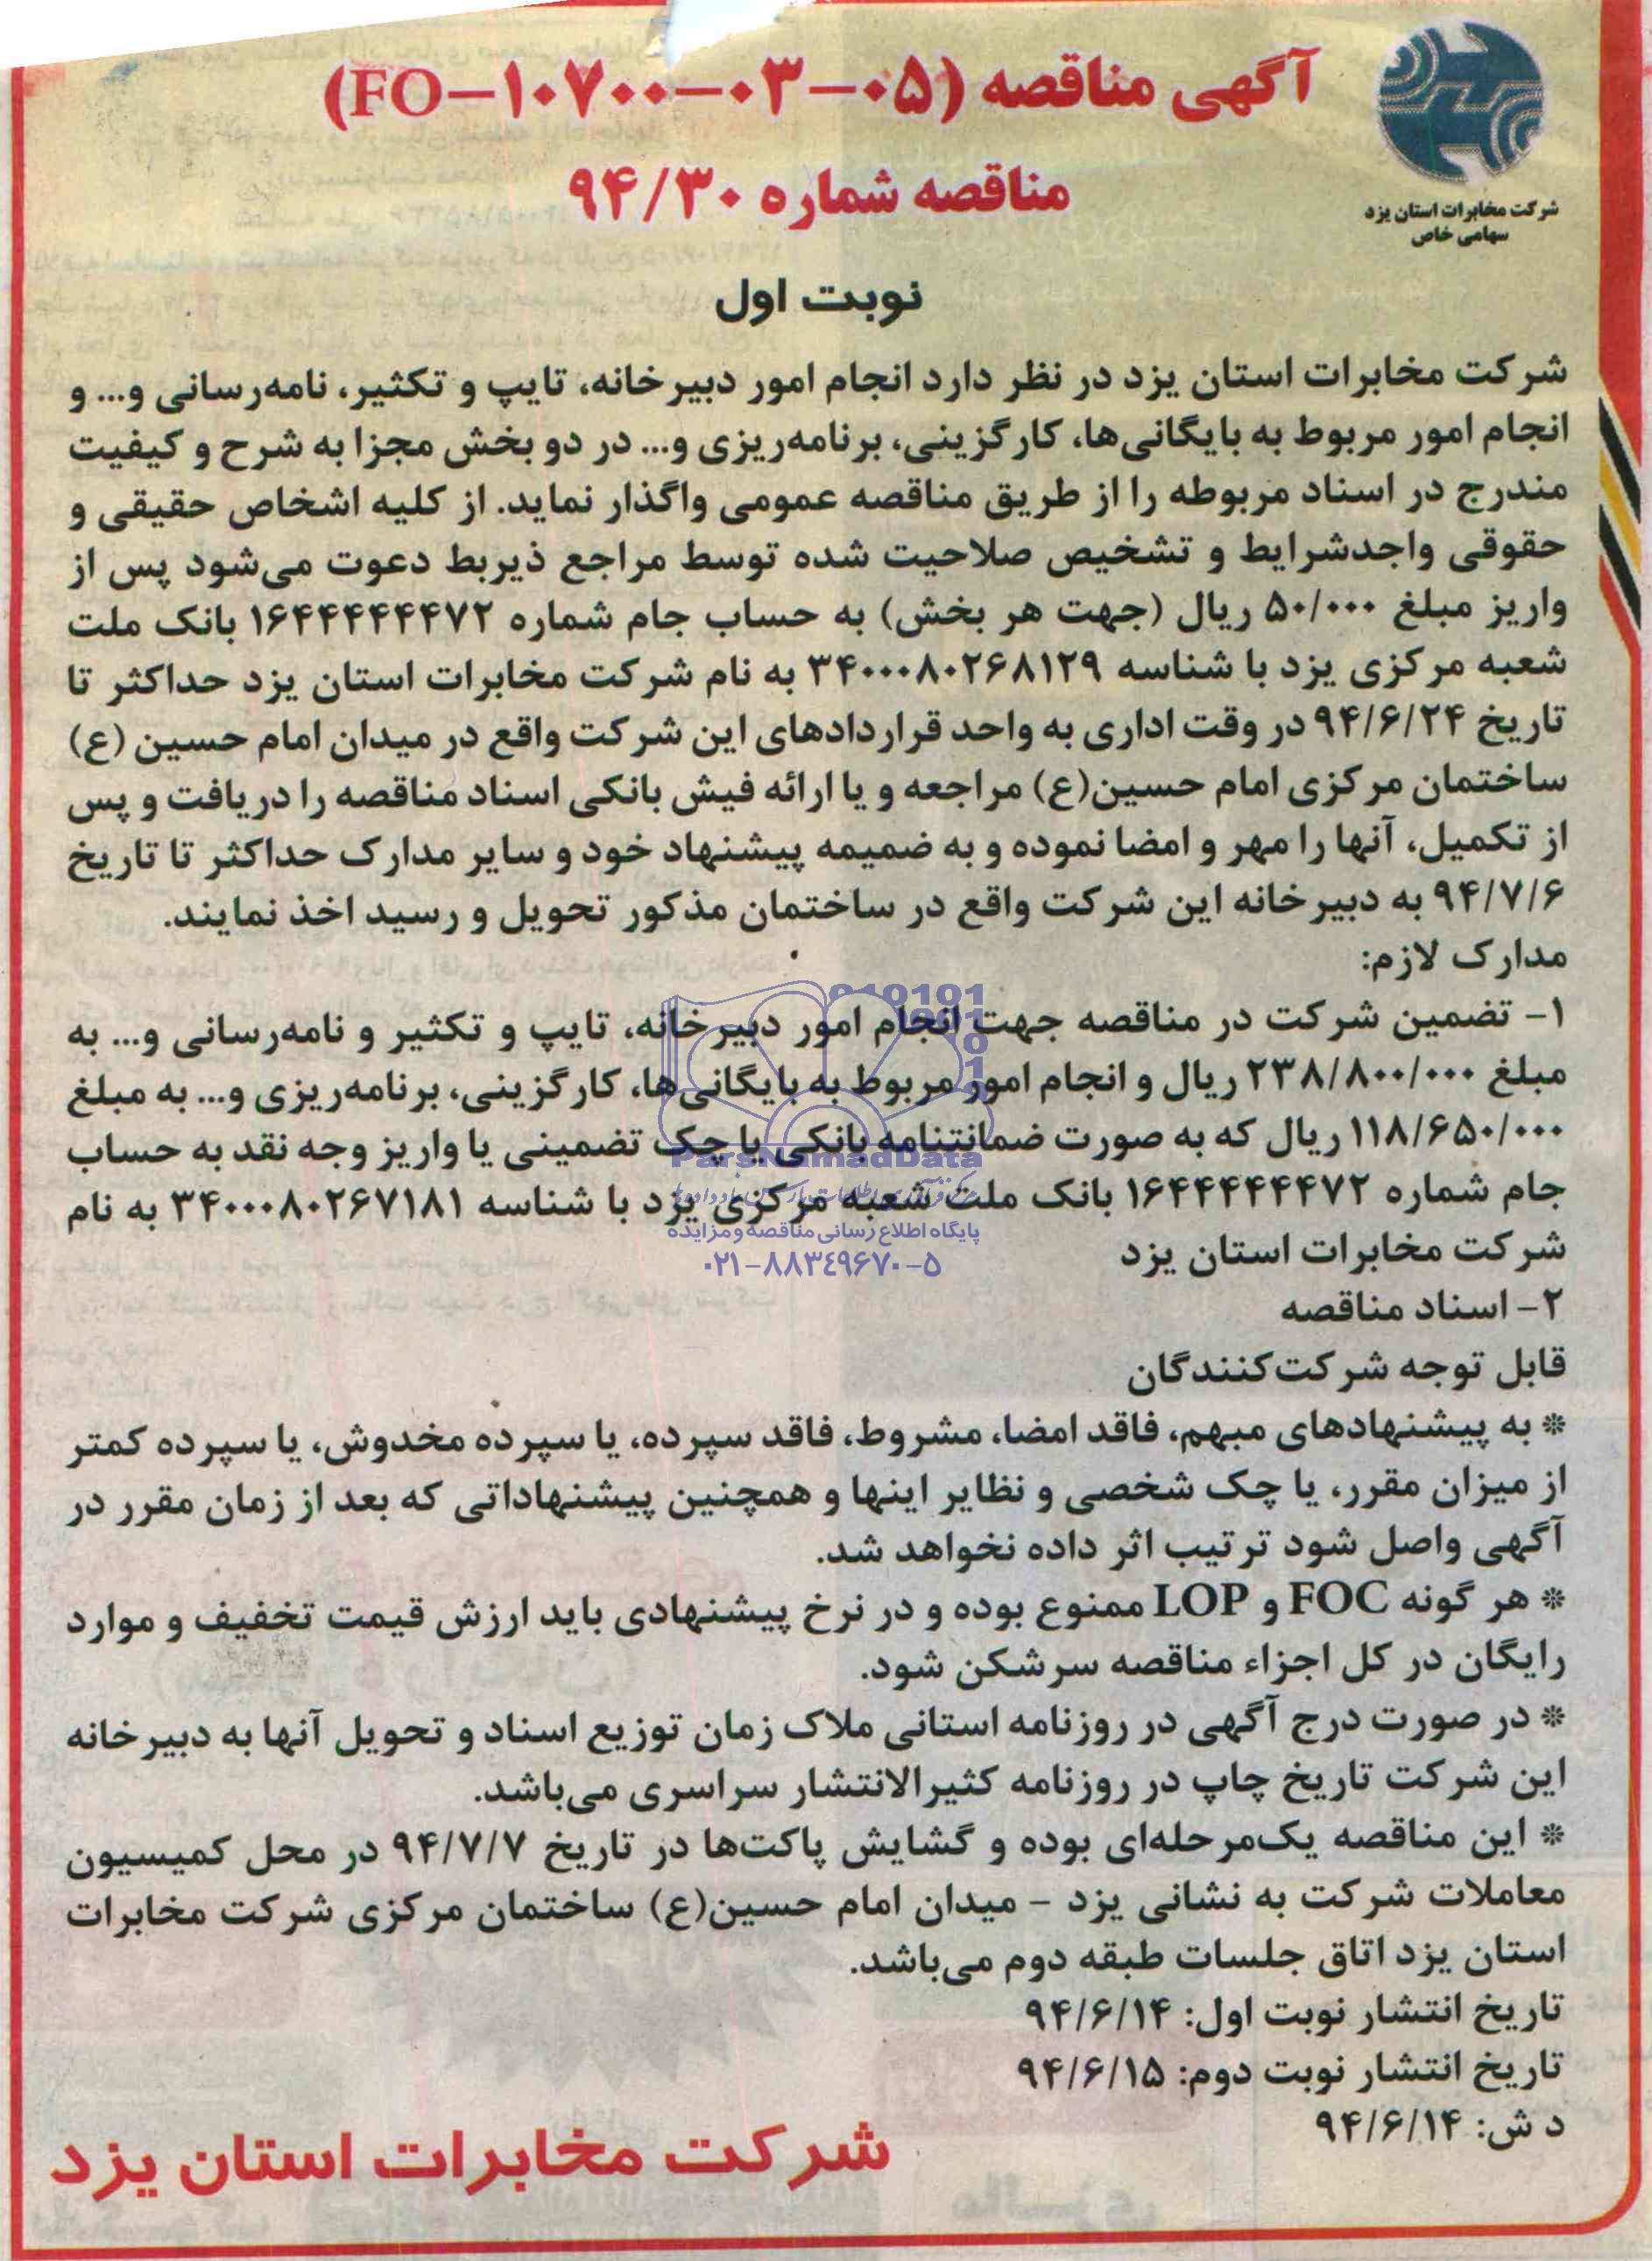 آگهی مناقصه (FO-۱۰۷۰۰-۰۳-۰۵)
مناقصه شماره ۹۴/۳۰
شرکت مخابرات استان یزد
سهامی خاص
نوبت اول
شرکت مخابرات استان یزد در نظر دارد انجام امور دبیرخانه، تایپ و تکثیر، نامه‌رسانی و... و
انجام امور مربوط به بایگانی‌ها، کارگزینی، برنامه‌ریزی و... در دو بخش مجزا به شرح و کیفیت
مندرج در اسناد مربوطه را از طریق مناقصه عمومی واگذار نماید. از کلیه اشخاص حقیقی و
حقوقی واجدشرایط و تشخیص صلاحیت شده توسط مراجع ذیربط دعوت می‌شود پس از
واریز مبلغ ۵۰/۰۰۰ ریال (جهت هر بخش) به حساب جام شماره ۱۶۴۴۴۴۴۴۷۲ بانک ملت
شعبه مرکزی یزد با شناسه ۳۴۰۰۰۸۰۲۶۸۱۲۹ به نام شرکت مخابرات استان یزد حداکثر تا
تاریخ ۹۴/۶/۲۴ در وقت اداری به واحد قراردادهای این شرکت واقع در میدان امام حسین (ع)
ساختمان مرکزی امام حسین(ع) مراجعه و یا ارائه فیش بانکی اسناد مناقصه را دریافت و پس
از تکمیل، آنها را مهر و امضا نموده و به ضمیمه پیشنهاد خود و سایر مدارک حداکثر تا تاریخ
۹۴/۷/۶ به دبیرخانه این شرکت واقع در ساختمان مذکور تحویل و رسید اخذ نمایند.
مدارک لازم:
۱- تضمین شرکت در مناقصه جهت انجام امور دبیرخانه، تایپ و تکثیر و نامه‌رسانی و... به
مبلغ ۲۳۸/۸۰۰/۰۰۰ ریال و انجام امور مربوط به بایگانی‌ها، کارگزینی، برنامه‌ریزی و... به مبلغ
۱۱۸/۶۵۰/۰۰۰ ریال که به صورت ضمانتنامه بانکی یا چک تضمینی یا واریز وجه نقد به حساب
جام شماره ۱۶۴۴۴۴۴۴۷۲ بانک ملت شعبه مرکزی یزد با شناسه ۳۴۰۰۰۸۰۲۶۷۱۸۱ به نام
شرکت مخابرات استان یزد
ParsNamadData
پایگاه اطلاع رسانی مناقصه و مزایده
۰۲۱-۸۸۳۴۹۶۷۰-۵
۲- اسناد مناقصه
قابل توجه شرکت‌کنندگان
* به پیشنهادهای مبهم، فاقد امضا، مشروط، فاقد سپرده، یا سپرده مخدوش، یا سپرده کمتر
از میزان مقرر، یا چک شخصی و نظایر اینها و همچنین پیشنهاداتی که بعد از زمان مقرر در
آگهی واصل شود ترتیب اثر داده نخواهد شد.
* هر گونه FOC و LOP ممنوع بوده و در نرخ پیشنهادی باید ارزش قیمت تخفیف و موارد
رایگان در کل اجزاء مناقصه سرشکن شود.
* در صورت درج آگهی در روزنامه استانی ملاک زمان توزیع اسناد و تحویل آنها به دبیرخانه
این شرکت تاریخ چاپ در روزنامه کثیرالانتشار سراسری می‌باشد.
* این مناقصه یک‌مرحله‌ای بوده و گشایش پاکت‌ها در تاریخ ۹۴/۷/۷ در محل کمیسیون
معاملات شرکت به نشانی یزد - میدان امام حسین(ع) ساختمان مرکزی شرکت مخابرات
استان یزد اتاق جلسات طبقه دوم می‌باشد.
تاریخ انتشار نوبت اول: ۹۴/۶/۱۴
تاریخ انتشار نوبت دوم: ۹۴/۶/۱۵
د ش: ۹۴/۶/۱۴
شرکت مخابرات استان یزد